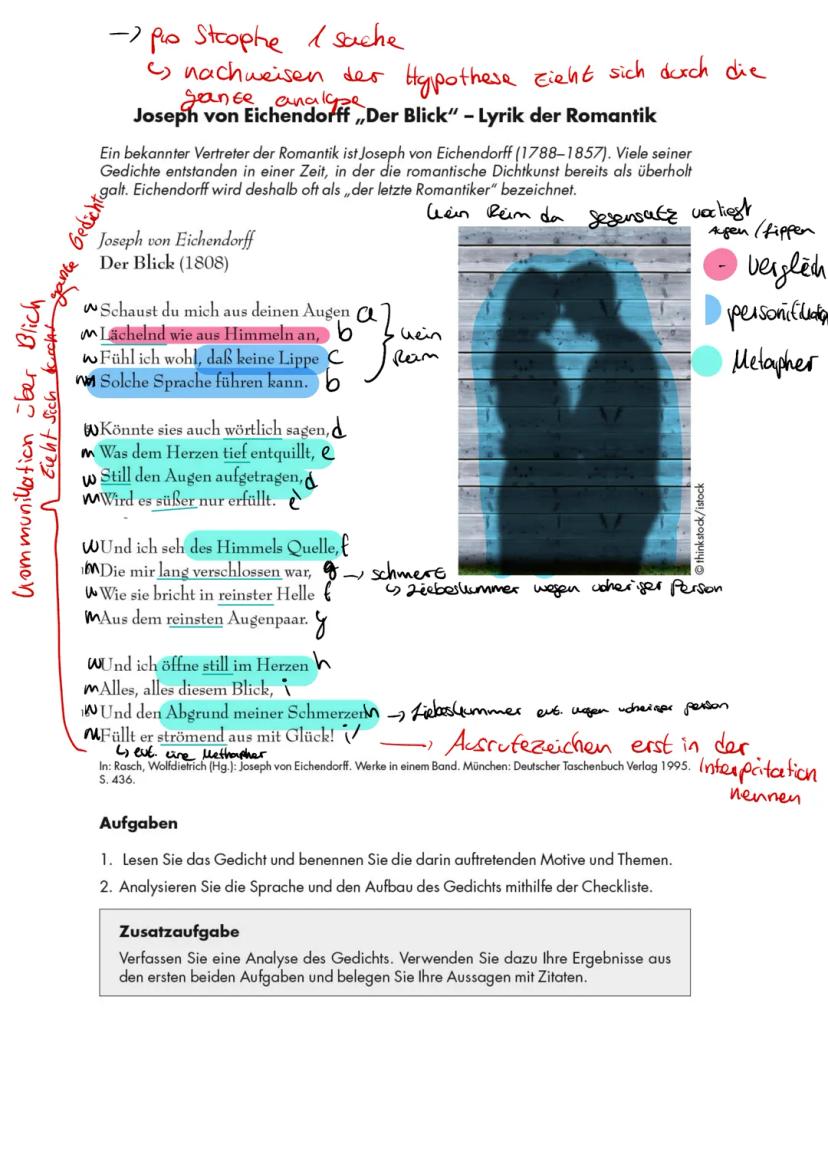 → pro Strophe 1 sache
↳ nachweisen der Hypothese zieht sich durch die
ganze analyse
Joseph von Eichendorff „Der Blick“ – Lyrik der Romantik
Ein bekannter Vertreter der Romantik ist Joseph von Eichendorff (1788–1857). Viele seiner
Gedichte entstanden in einer Zeit, in der die romantische Dichtkunst bereits als überholt
galt. Eichendorff wird deshalb oft als „der letzte Romantiker“ bezeichnet.
kein Reim da gegensatz vorliegt
Augen / Lippen
Joseph von Eichendorff
Der Blick (1808)
- Vergleich
personifikation
Metapher
Kommunikation über Blick
zieht sich durch ganze Gedicht
w Schaust du mich aus deinen Augen a
m Lächelnd wie aus Himmeln an, b
w Fühl ich wohl, daß keine Lippe c
m Solche Sprache führen kann. b
kein
Reim
w Könnte sies auch wörtlich sagen, d
m Was dem Herzen tief entquillt, e
w Still den Augen aufgetragen, d
m Wird es süßer nur erfüllt. e
w Und ich seh des Himmels Quelle, f
m Die mir lang verschlossen war, g → schmerz
↳ Liebeskummer wegen vorheriger Person
w Wie sie bricht in reinster Helle f
m Aus dem reinsten Augenpaar. g
w Und ich öffne still im Herzen h
m Alles, alles diesem Blick, i
w Und den Abgrund meiner Schmerzen h → Liebeskummer evt. wegen vorheriger person
m Füllt er strömend aus mit Glück! i
↳ evt. eine Methapher
→ Ausrufezeichen erst in der
Interpritation
nennen
In: Rasch, Wolfdietrich (Hg.): Joseph von Eichendorff. Werke in einem Band. München: Deutscher Taschenbuch Verlag 1995.
S. 436.
© thinkstock/istock
Aufgaben
1. Lesen Sie das Gedicht und benennen Sie die darin auftretenden Motive und Themen.
2. Analysieren Sie die Sprache und den Aufbau des Gedichts mithilfe der Checkliste.
Zusatzaufgabe
Verfassen Sie eine Analyse des Gedichts. Verwenden Sie dazu Ihre Ergebnisse aus
den ersten beiden Aufgaben und belegen Sie Ihre Aussagen mit Zitaten.